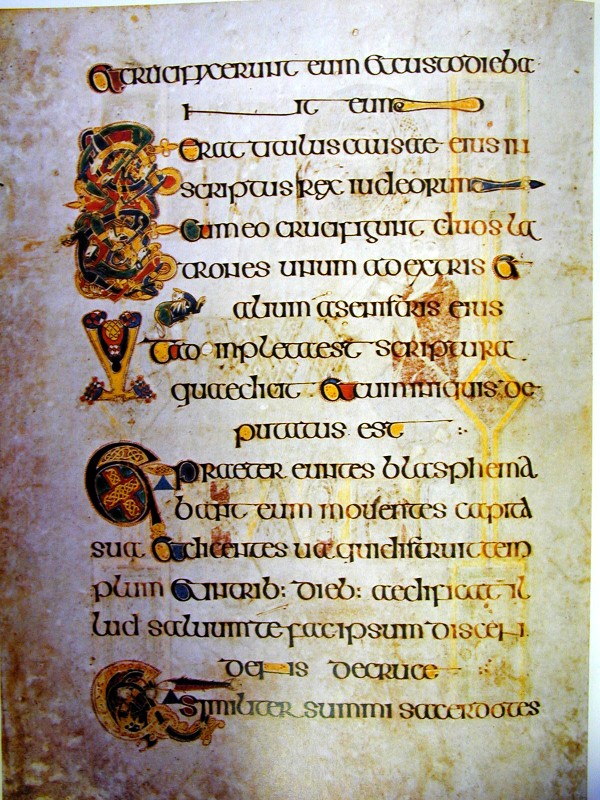 Et crucifixerunt eum et custodieba
nt eum
Et erat titulus causae eius in
scriptus rex iudeorum
Et cum eo crucifigunt duos la
trones unum adextris et
alium asenistris eius
inpleta est scriptura
quae dicit et cum iniquis de
putatus est
Et praeter euntes blasphema
bant eum mouentes capita
sua et dicentes ua qui distruit tem
plum et in trib: dieb: aedificat il
lud saluum te fac ipsum discen
dens decruce
similiter summi sacerdotes